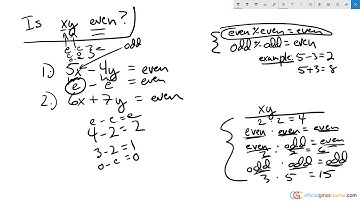 Is xy even?
e·e 3 odd
1.) 5x - 4y = even
e - e = even
2.) 6x + 7y = even
e - e = e
4 - 2 = 2
3 - 2 = 1
o - e = o
even ± even = even
odd ± odd = even
example: 5-3=2
5+3=8
xy
2 = 4
even · even = even
even · odd = even
2
odd · odd = odd
3 · 5 = 15
officialgmatcourse.com